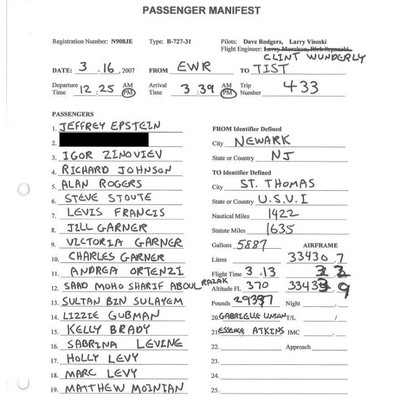 PASSENGER MANIFEST
Registration Number: N908JE Type: B-727-31 Pilots: Dave Rodgers, Larry Visoski
Flight Engineer: Larry Morrison, Rich
CLINT WUNDERLY
DATE: 3 . 16 , 2007 FROM EWR TO TIST
Departure Time 12 . 25 AM PM Arrival Time 3 . 39 AM PM Trip Number 433
PASSENGERS
1. JEFFREY EPSTEIN
2.
3. IGOR ZINOVIEV
4. RICHARD JOHNSON
5. ALAN ROGERS
6. STEVE STOUTE
7. LEVIS FRANCIS
8. JILL GARNER
9. VICTORIA GARNER
10. CHARLES GARNER
11. ANDREA ORTENZI
12. SAAD MOHO SHARIF ABOUL RAZAK
13. SULTAN BIN SULAYEM
14. LIZZIE GUBMAN
15. KELLY BRADY
16. SABRINA LEVINE
17. HOLLY LEVY
18. MARC LEVY
19. MATTHEW MOINIAN
FROM Identifier Defined
City NEWARK
State or Country NJ
TO Identifier Defined
City ST. THOMAS
State or Country U.S.V.I
Nautical Miles 1422
Statute Miles 1635
Gallons 5887 AIRFRAME
Litres 33430 . 7
Flight Time 3 . 13 3 . 2
Altitude FL 370 33433 . 9
Pounds Night
20. GABRIELLE UNION T/L /
21. ESSENCE ATKINS IMC .
22. Approach
23.
24.
25.